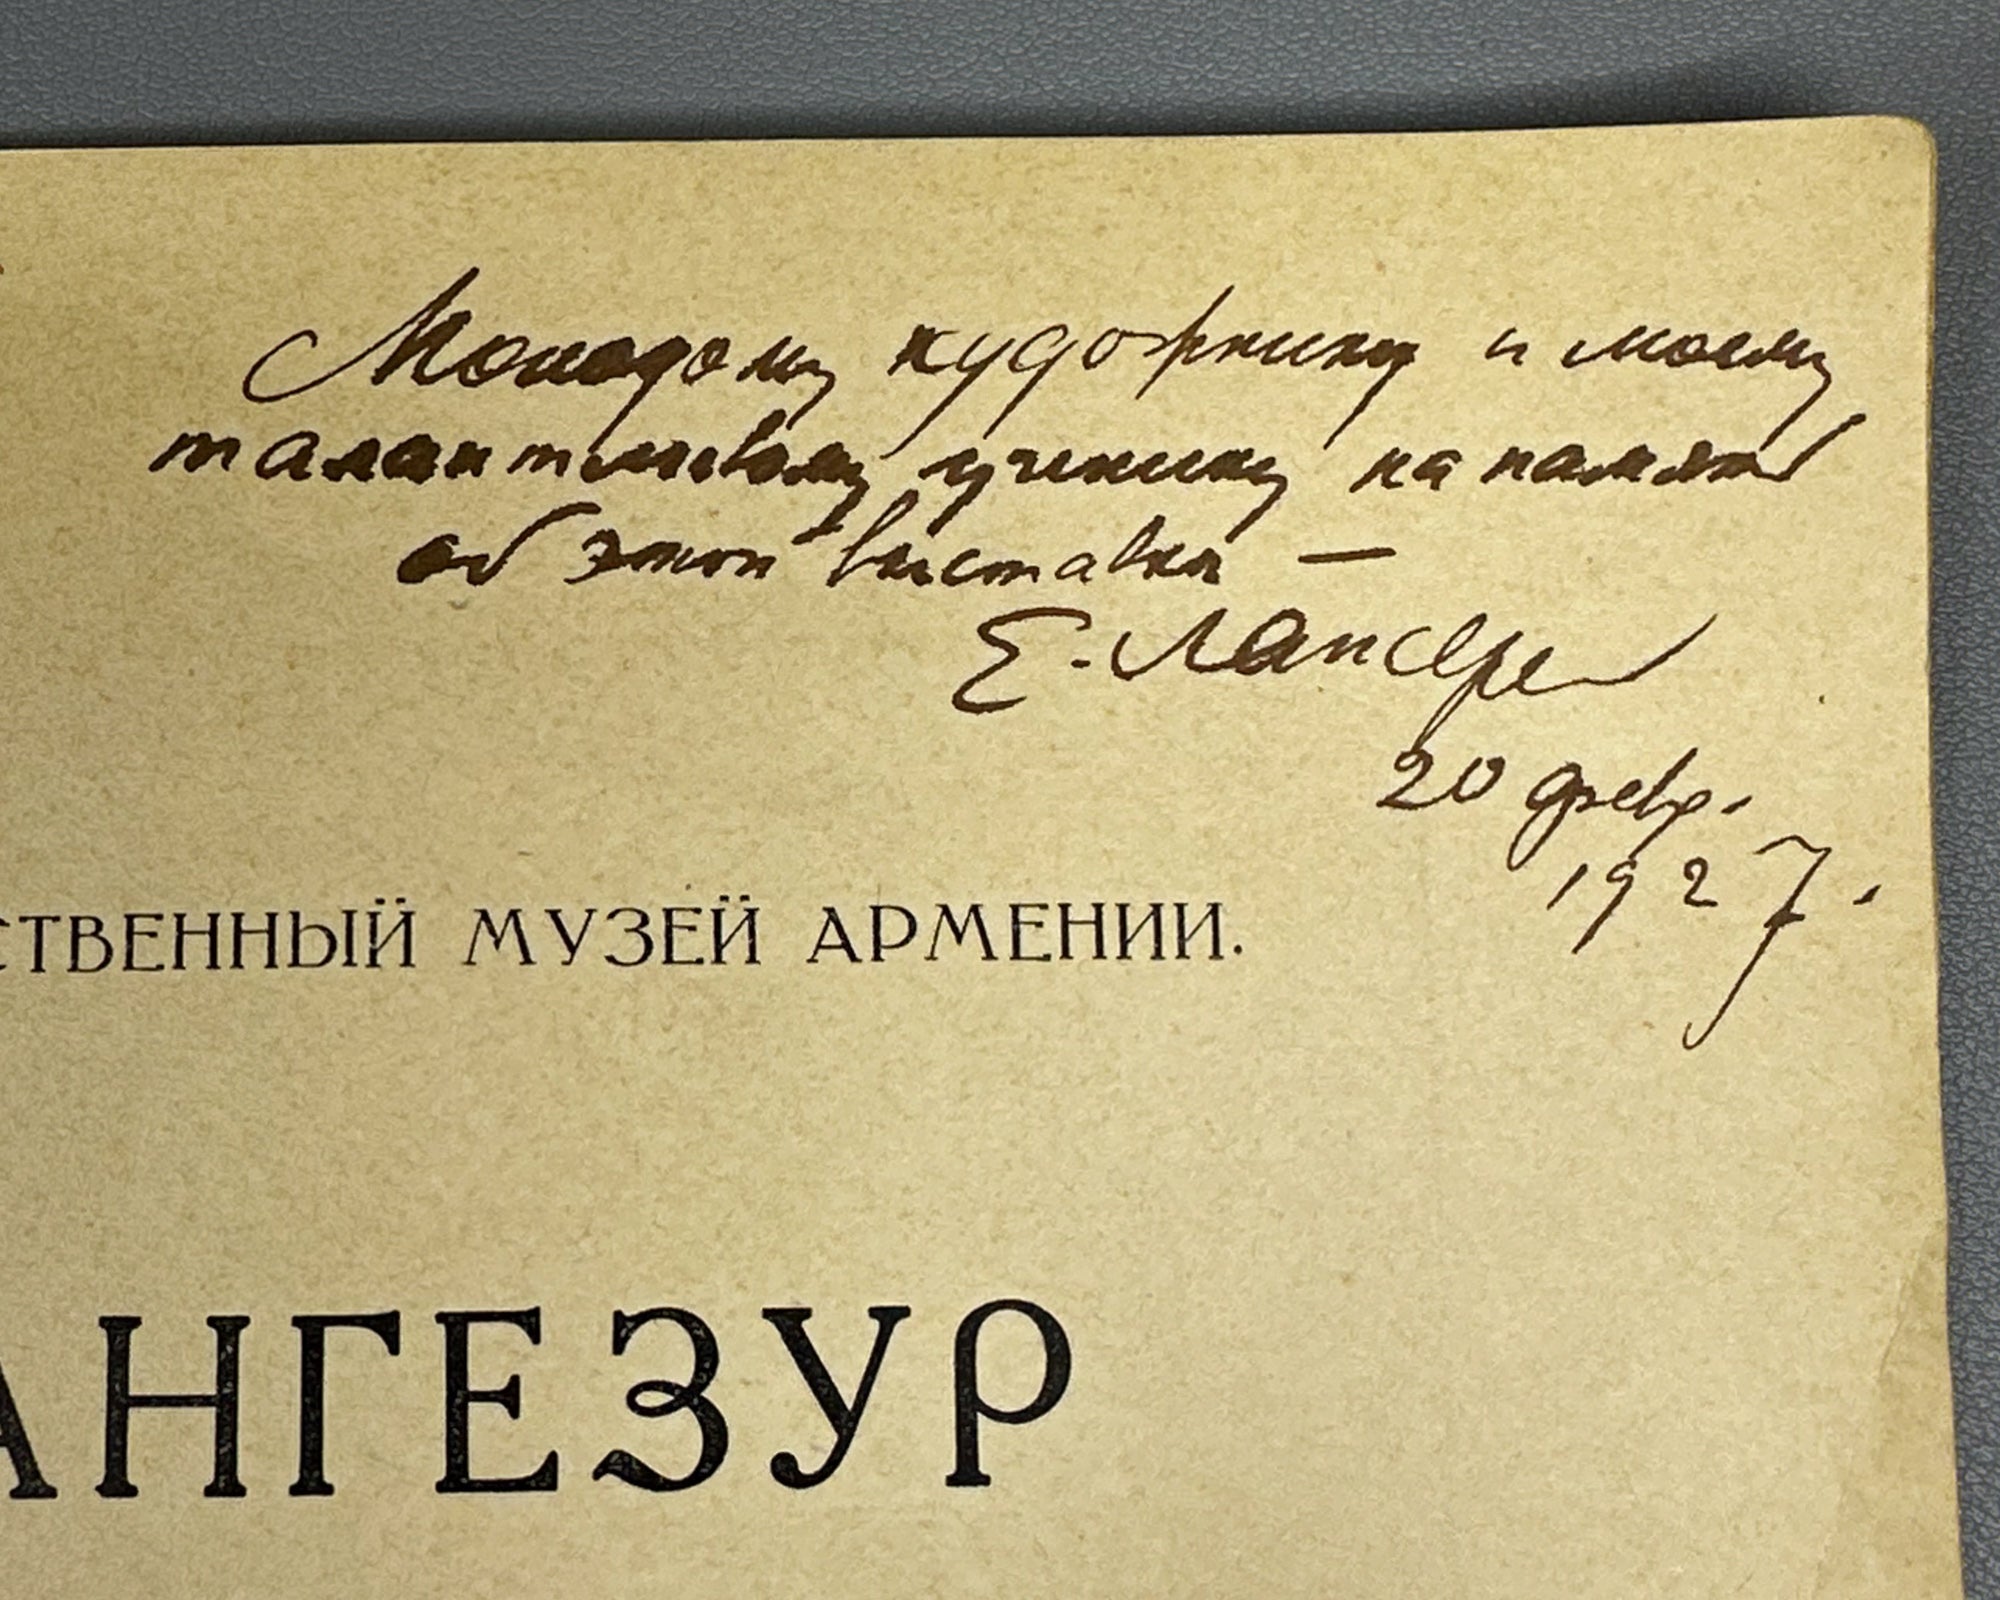 Молодому художнику и моему
талантливому ученику на память
об этой выставки —
Е. Лансере
20 февр.
1927.
СТВЕННЫЙ МУЗЕЙ АРМЕНИИ.
АНГЕЗУР